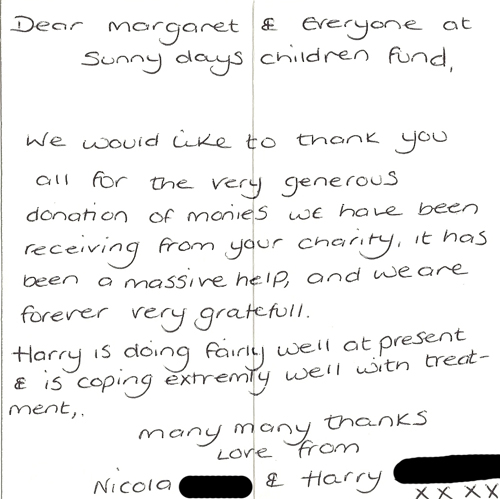 Dear margaret & Everyone at
Sunny days children fund,
We would like to thank you
all for the very generous
donation of monies we have been
receiving from your charity, it has
been a massive help, and we are
forever very gratefull.
Harry is doing fairly well at present
& is coping extremly well with treat-
ment,.
many many thanks
Love from
Nicola & Harry
x x x x